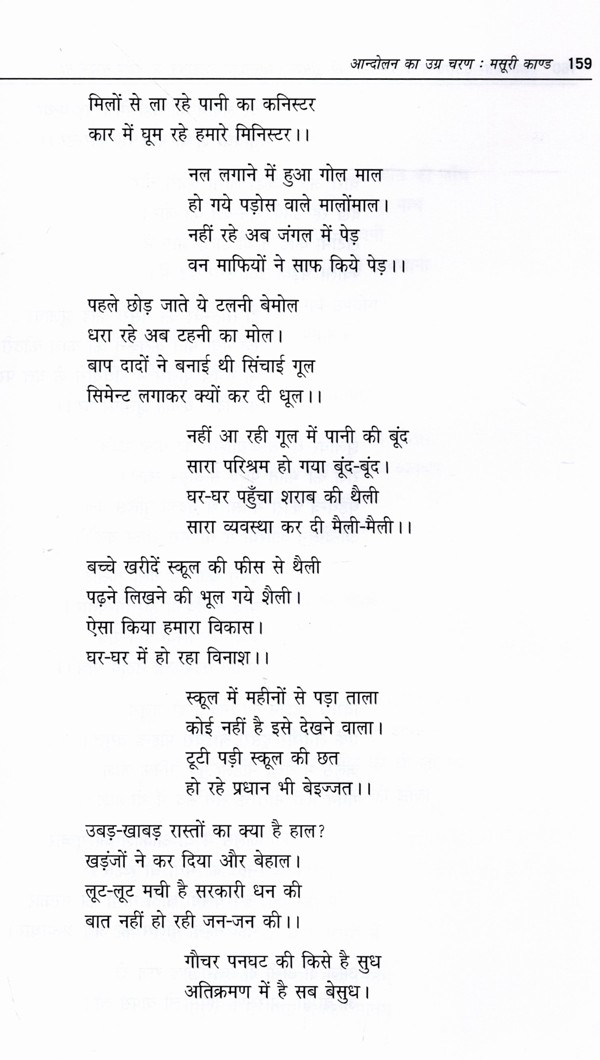 आन्दोलन का उग्र चरण : मसूरी काण्ड 159
मिलों से ला रहे पानी का कनिस्टर
कार में घूम रहे हमारे मिनिस्टर।।
नल लगाने में हुआ गोल माल
हो गये पड़ोस वाले मालोंमाल।
नहीं रहे अब जंगल में पेड़
वन माफियों ने साफ किये पेड़।।
पहले छोड़ जाते ये टलनी बेमोल
धरा रहे अब टहनी का मोल।
बाप दादों ने बनाई थी सिंचाई गूल
सिमेन्ट लगाकर क्यों कर दी धूल।।
नहीं आ रही गूल में पानी की बूंद
सारा परिश्रम हो गया बूंद-बूंद।
घर-घर पहुँचा शराब की थैली
सारा व्यवस्था कर दी मैली-मैली।।
बच्चे खरीदें स्कूल की फीस से थैली
पढ़ने लिखने की भूल गये शैली।
ऐसा किया हमारा विकास।
घर-घर में हो रहा विनाश।।
स्कूल में महीनों से पड़ा ताला
कोई नहीं है इसे देखने वाला।
टूटी पड़ी स्कूल की छत
हो रहे प्रधान भी बेइज्जत।।
उबड़-खाबड़ रास्तों का क्या है हाल?
खड़ंजों ने कर दिया और बेहाल।
लूट-लूट मची है सरकारी धन की
बात नहीं हो रही जन-जन की।।
गौचर पनघट की किसे है सुध
अतिक्रमण में है सब बेसुध।